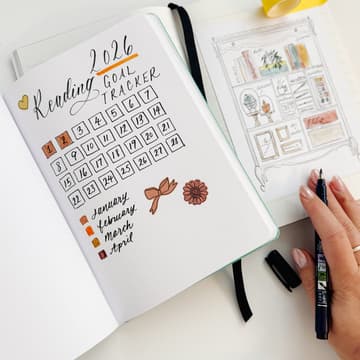 2026
Reading GOAL
TRACKER
1 2 3 4 5 6 7
8 9 10 11 12 13 14
15 16 17 18 19 20 21
22 23 24 25 26 27 28
January
february
March
April